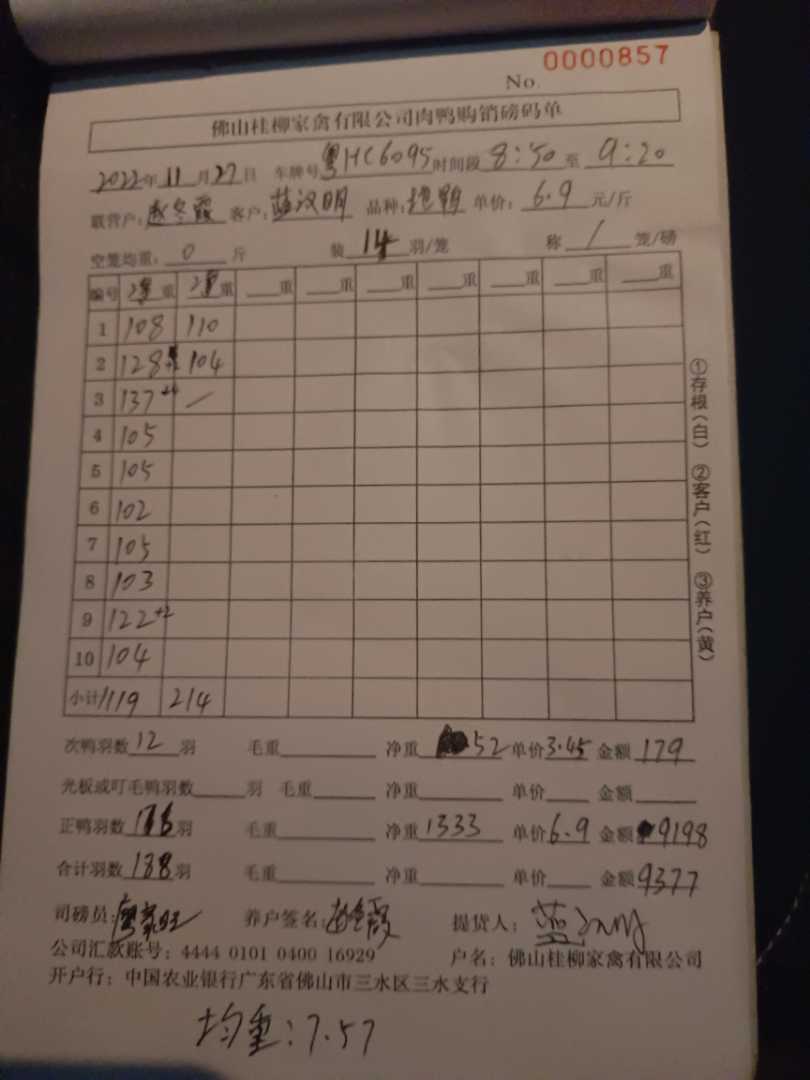 No. 0000857
佛山桂柳家禽有限公司肉鸭购销磅码单
2022年11月27日 车牌号粤HC6095时间段8:50至9:20
联营户:赵冬霞 客户:蓝汉明 品种: 单价:6.9元/斤
空笼均重:0斤 装14羽/笼 称1笼/磅
编号 重 重 重 重 重 重 重 重
1 108 110
2 128 104
3 137+4 /
4 105
5 105
6 102
7 105
8 103
9 122+2
10 104
小计 1119 214
①存根(白) ②客户(红) ③养户(黄)
次鸭羽数12羽 毛重 净重52单价3.45金额179
光板或叮毛鸭羽数 羽 毛重 净重 单价 金额
正鸭羽数 羽 毛重 净重1333单价6.9金额9198
合计羽数188羽 毛重 净重 单价 金额9377
司磅员: 养户签名: 提货人:
公司汇款账号:4444 0101 0400 16929 户名:佛山桂柳家禽有限公司
开户行:中国农业银行广东省佛山市三水区三水支行
均重:7.57